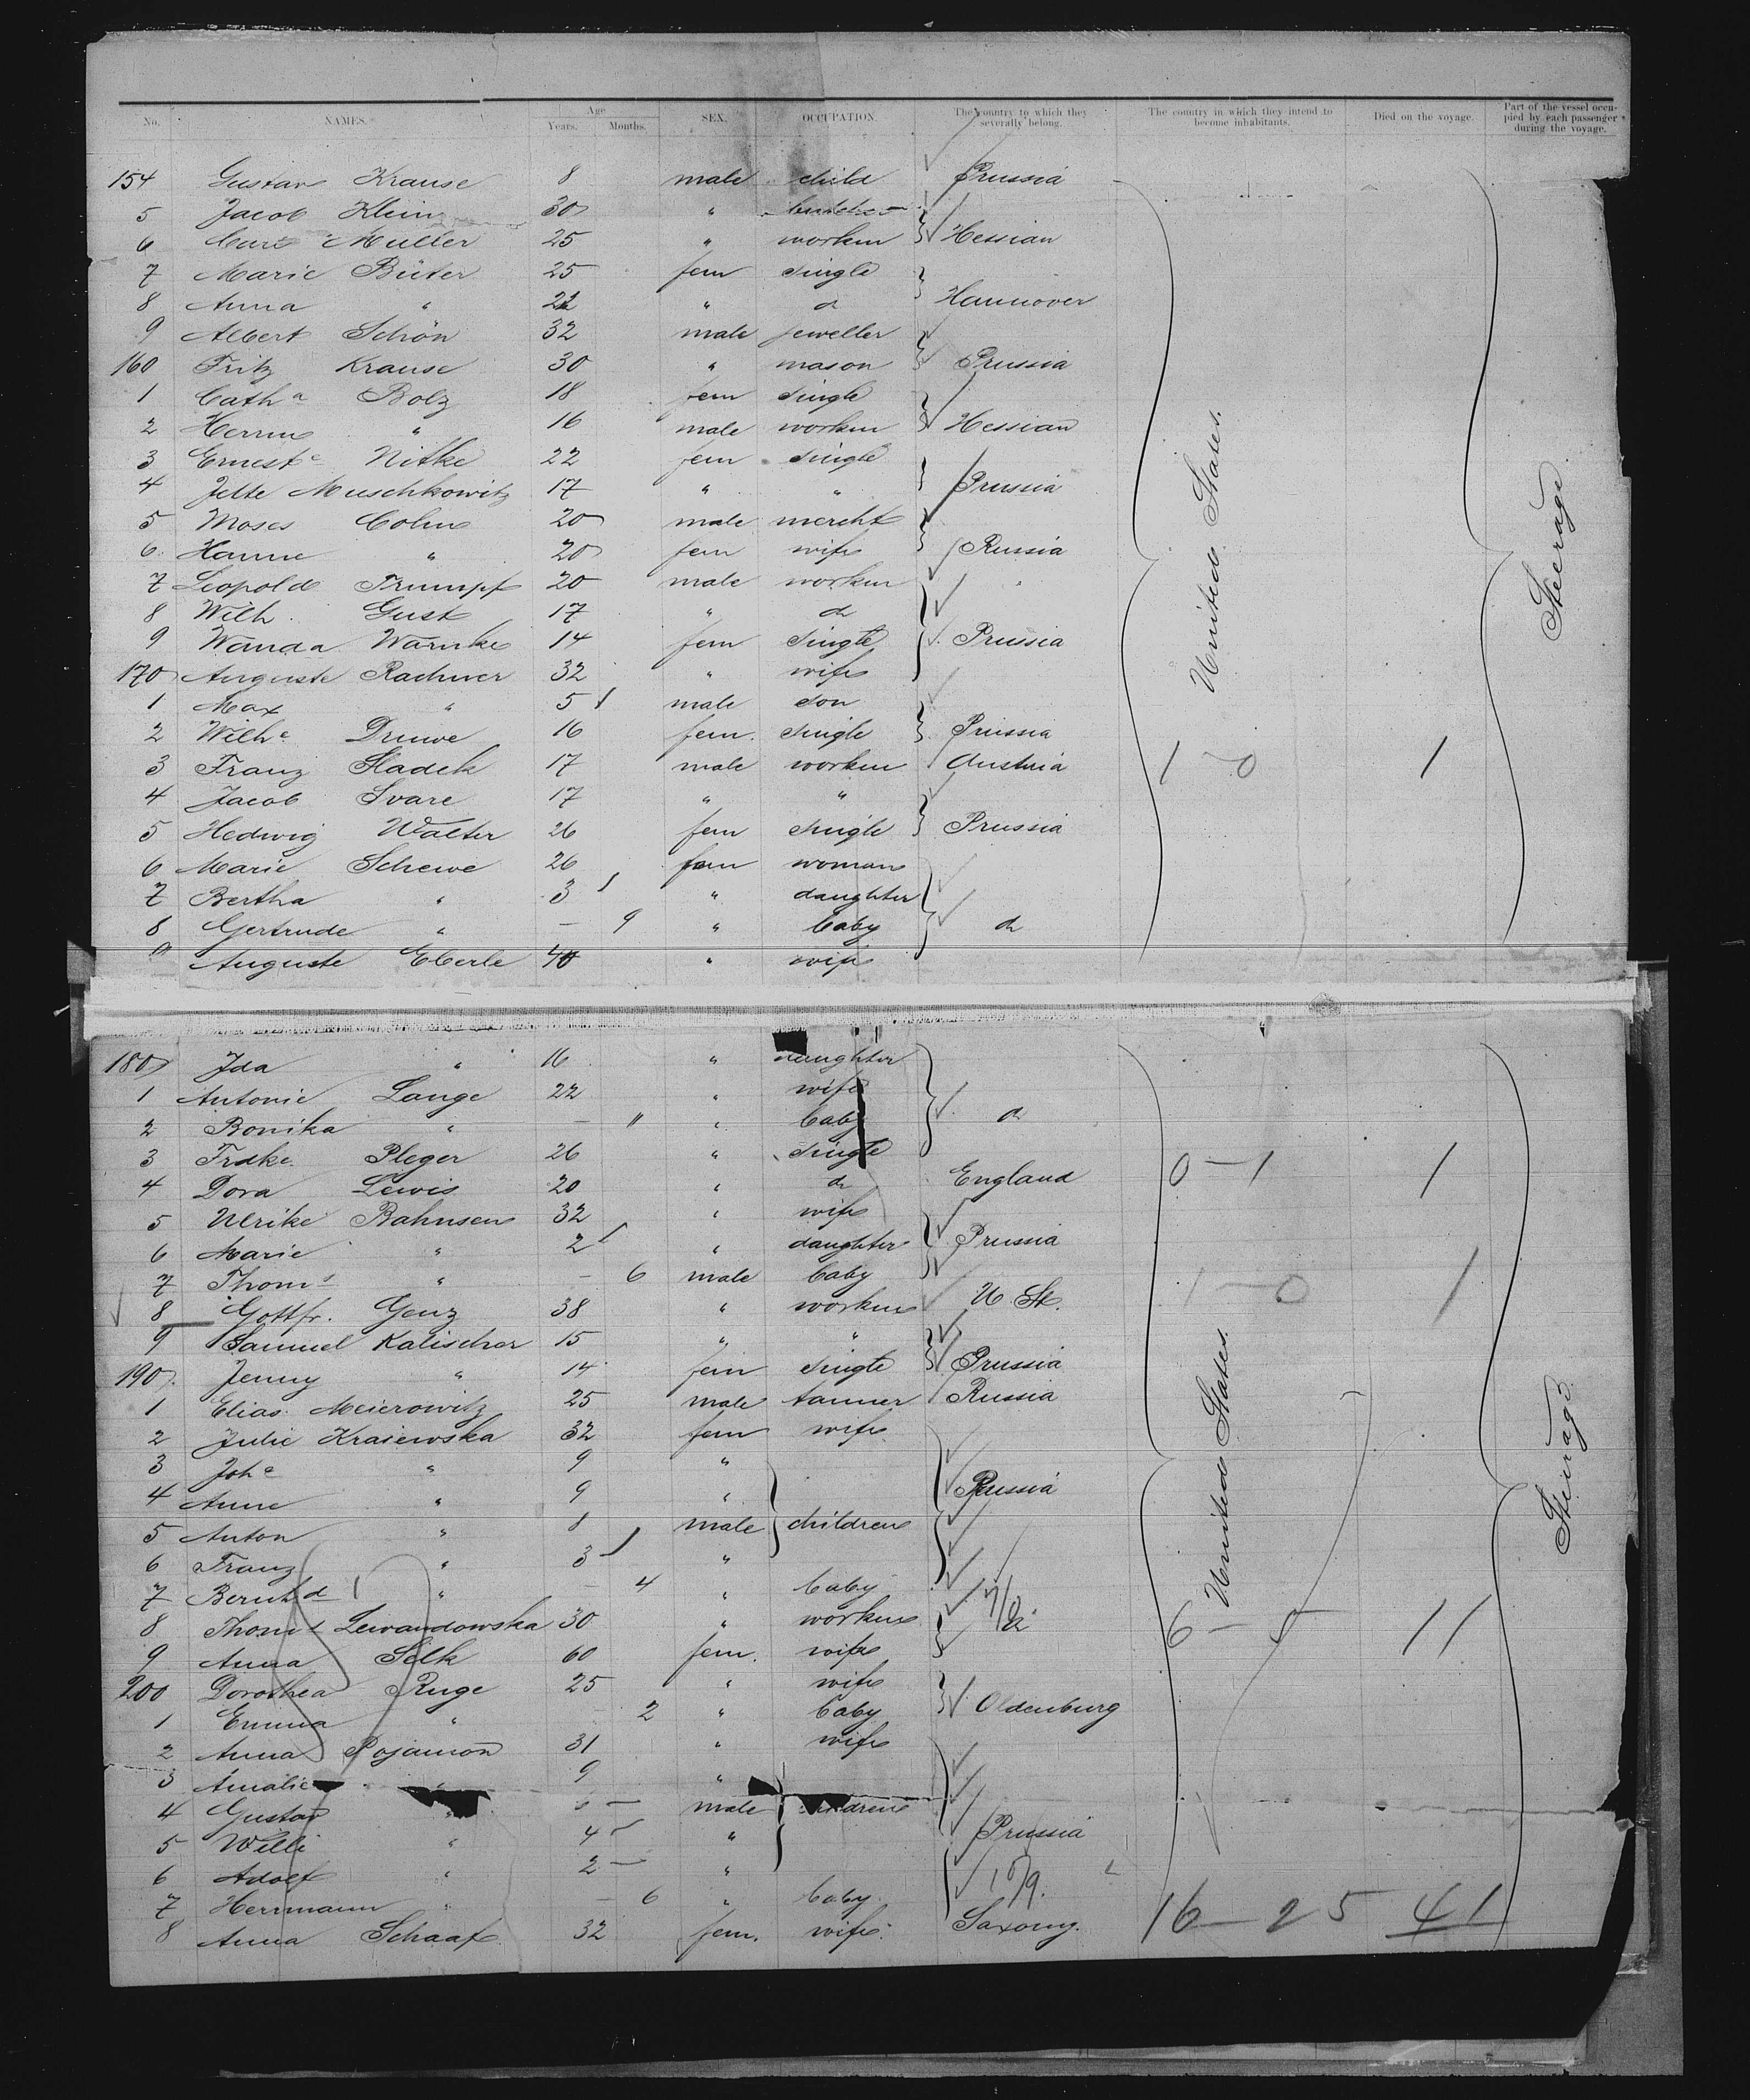 No. NAMES. Age Years. Months. SEX. OCCUPATION. The country to which they severally belong. The country in which they intend to become inhabitants. Died on the voyage. Part of the vessel occupied by each passenger during the voyage.
154 Gustav Krause 8 male child Prussia
5 Jacob Klein 30 " butcher
6 Carl Muller 25 " workm Hessian
7 Marie Büter 25 fem single
8 Anna " 22 " do Hannover
9 Albert Schön 32 male jeweller
160 Fritz Krause 30 " mason Prussia
1 Cath a Bolz 18 fem single
2 Herrm " 16 male workm Hessian
3 Ernest e Nitke 22 fem single
4 Jette Muschkowitz 17 " " Prussia
5 Moses Cohn 20 male mercht
6 Hanne " 20 fem wife Russia
7 Leopold Trumpf 20 male workm
8 Wilh. Gust 17 " do
9 Wanda Warnke 14 fem single Prussia
170 Auguste Rachner 32 " wife
1 Max " 5 male son
2 Wilh e Druwe 16 fem. single Prussia
3 Franz Sladek 17 male workm Austria 1 0 1
4 Jacob Svare 17 " "
5 Hedwig Walter 26 fem single Prussia
6 Marie Schewe 26 fem woman
7 Bertha " 3 " daughter
8 Gertrude " — 9 " baby do
9 Auguste Eberle 40 " wife
United States.
Steerage.
180 Ida " 16 " daughter
1 Antonie Lange 22 " wife
2 Ronika " — 11 " baby do
3 Frdke. Pleger 26 " single
4 Dora Lewis 20 " do England 0 — 1 1
5 Ulrike Bahnsen 32 " wife
6 Marie " 2 " daughter Prussia
7 Thom s " — 6 male baby
8 Gottfr. Genz 38 " workm U. St. 1 — 0 1
9 Samuel Kalischer 15 " "
190 Jenny " 14 fem single Prussia
1 Elias Meierowitz 25 male tanner Russia
2 Julie Kraiewska 32 fem wife
3 Joh e " 9 "
4 Anne " 9 " Russia
5 Anton " 8 male children
6 Franz " 3 "
7 Bernh d " — 4 " baby
8 Thom s Lewandowska 30 " workm do 6 — 5 11
9 Anna Selk 60 fem. wife
200 Dorothea Ruge 25 " wife
1 Emma " — 2 " baby Oldenburg
2 Anna Pojamon 31 " wife
3 Amalie " 9 "
4 Gustav " male children
5 Willi " 4 " Prussia
6 Adolf " 2 "
7 Herrmann " — 6 " baby 10/9.
8 Anna Schaaf 32 fem. wife Saxony. 16 — 25 41
United States.
Steerage.